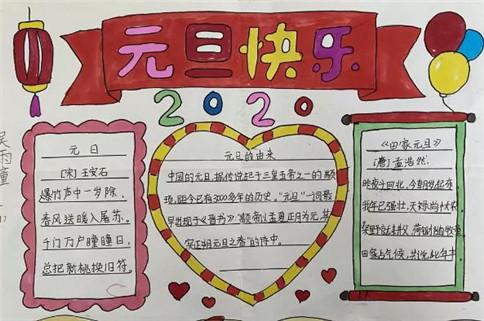 元旦快乐
2020
元日
[宋]王安石
爆竹声中一岁除
春风送暖入屠苏.
千门万户曈曈日.
总把新桃换旧符.
元旦的由来
中国的元旦,据传说起于三皇五帝之一的颛
顼,距今已有3000多年的历史。"元旦"一词最
早出现于《晋书》:"颛帝以孟夏正月为元,其
实正朔元旦之春"的诗中。
《田家元旦》
[唐]孟浩然.
昨夜斗回北,今朝岁起东
我年已强壮,无禄尚
桑野就耕父,荷锄随牧童
田家占气候,共说此年丰
吴
雨